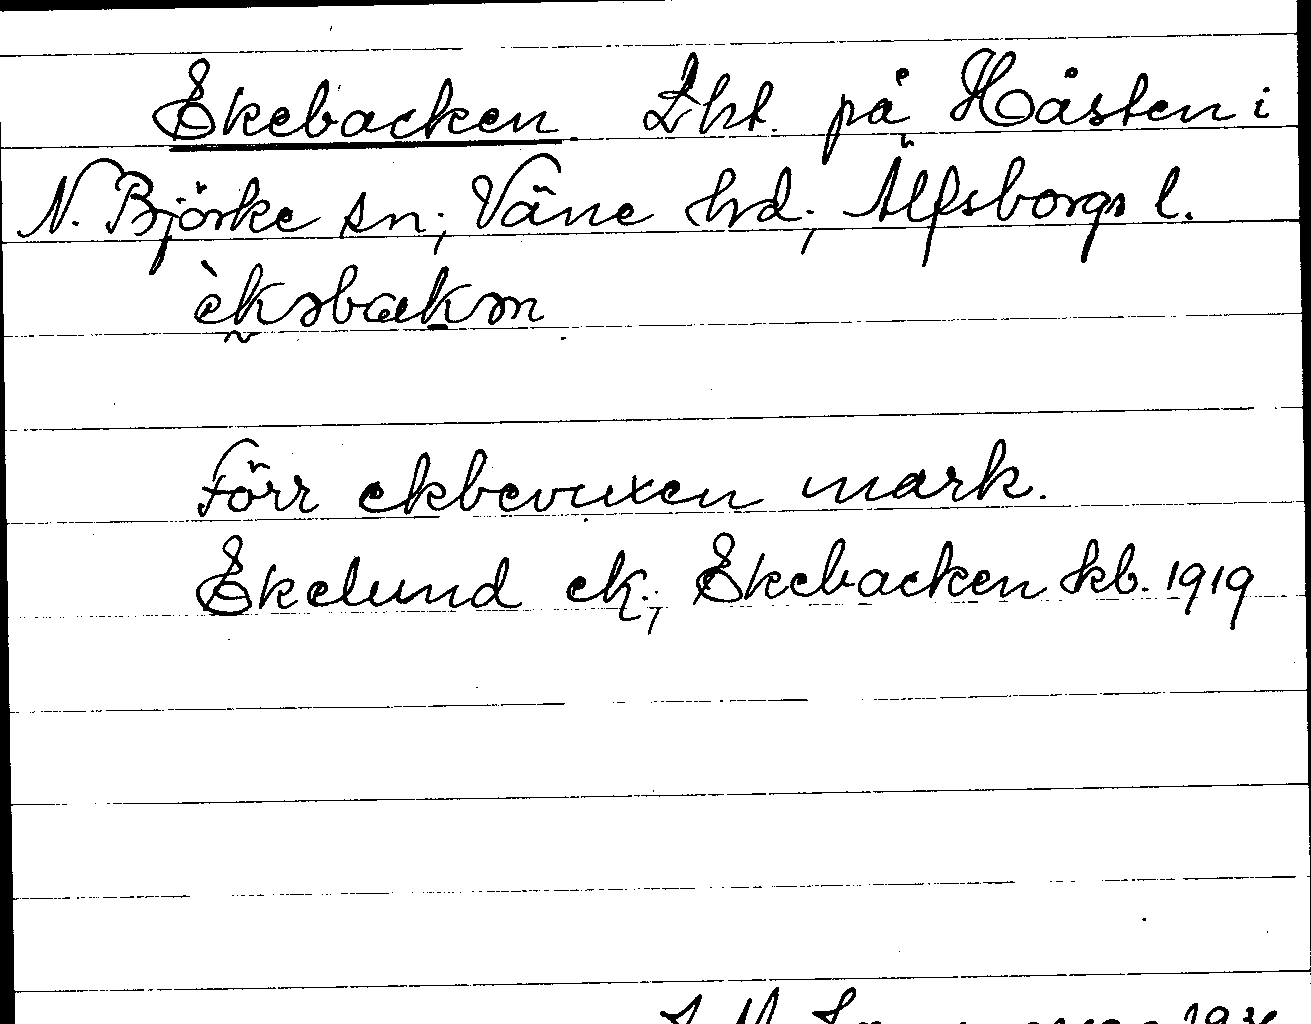 Ekebacken. Lht. på Håsten i
N. Björke sn; Väne hd; Älfsborgs l.
èkəbakən
Förr ekbevuxen mark.
Ekelund ek.; Ekebacken kb. 1919